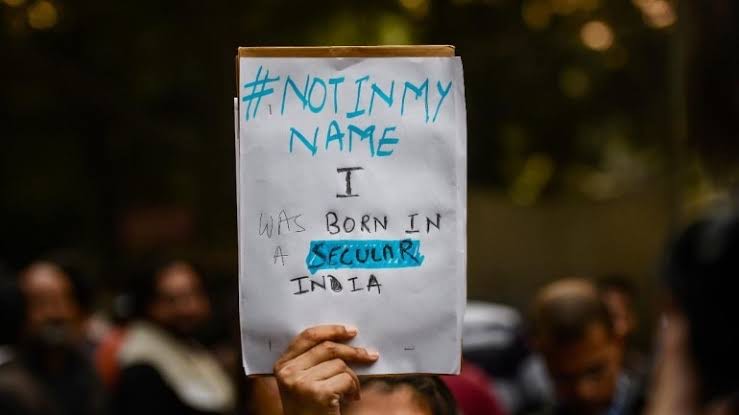 #NOTINMY
NAME
I
WAS BORN IN
A SECULAR
INDIA